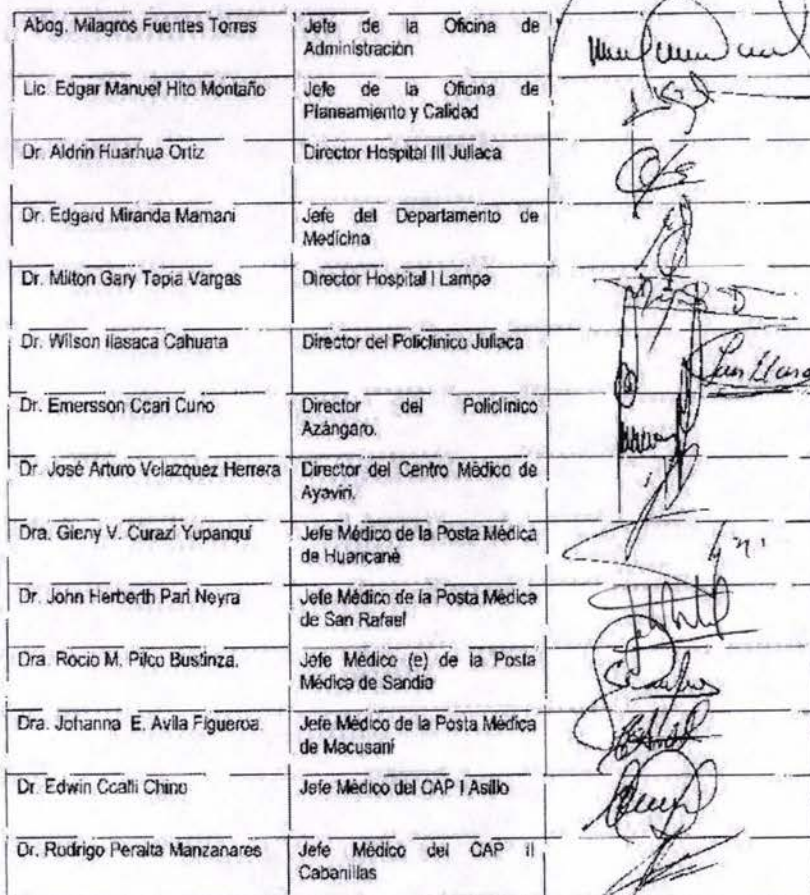 Abog. Milagros Fuentes Torres
Jefe de la Oficina de
Administración
Lic. Edgar Manuel Hito Montaño
Jefe de la Oficina de
Planeamiento y Calidad
Dr. Aldrin Huarhua Ortiz
Director Hospital III Juliaca
Dr. Edgard Miranda Mamani
Jefe del Departamento de
Medicina
Dr. Milton Gary Tapia Vargas
Director Hospital I Lampa
Dr. Wilson Ilasaca Cahuata
Director del Policlínico Juliaca
Dr. Emersson Ccari Curo
Director del Policlínico
Azángaro.
Dr. José Arturo Velazquez Herrera
Director del Centro Médico de
Ayaviri.
Dra. Gleny V. Curazi Yupanqui
Jefe Médico de la Posta Médica
de Huancané
Dr. John Herberth Pari Neyra
Jefe Médico de la Posta Médica
de San Rafael
Dra. Rocio M. Pilco Bustinza.
Jefe Médico (e) de la Posta
Médica de Sandia
Dra. Johanna E. Avila Figueroa.
Jefe Médico de la Posta Médica
de Macusani
Dr. Edwin Ccalli Chino
Jefe Médico del CAP I Asillo
Dr. Rodrigo Peralta Manzanares
Jefe Médico del CAP II
Cabanillas